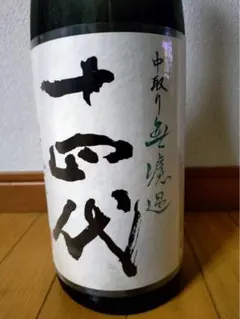 中取り無濾過
十四代